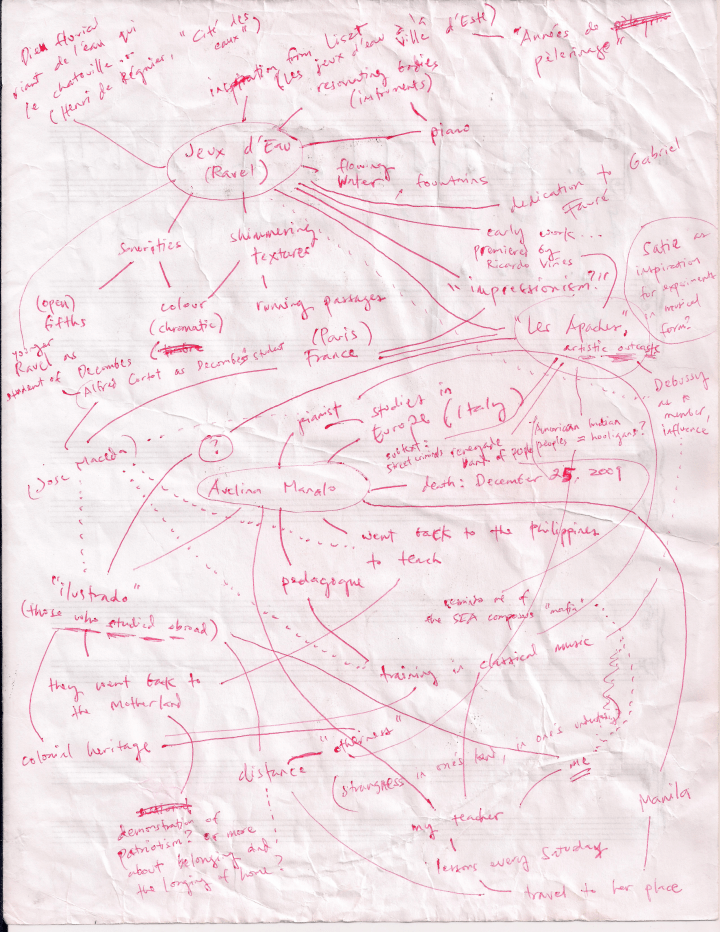 Dieu fluvial
riant de l'eau qui
le chatouille...
(Henri de Régnier, "Cité des
eaux")
inspiration from Liszt
(Les jeux d'eau à la
Ville d'Este)
"Années de
pèlerinage"
resonating bodies
(instruments)
piano
Jeux d'Eau
(Ravel)
flowing
water
fountains
dedication to Gabriel
Fauré
early work...
premiered by
Ricardo Viñes
"impressionism?"
Satie as
inspiration
for experiments
in musical
form?
Sonorities
shimmering
textures
(open)
fifths
colour
(chromatic)
timbre
running passages
"Les Apaches"
artistic outcasts
(Paris)
France
younger
Ravel as
student of Decombes
(Alfred Cortot as Decombes' student
Debussy
as a
member,
influence
pianist
studies in
Europe (Italy)
(Jose Maceda)
?
context:
street
renegade
band of
"American Indian
peoples = hooligans?
Avelina Manalo
death: December 25, 2009
went back to the Philippines
to teach
pedagogue
"ilustrado"
(those who studied abroad)
reminds me of
the SEA composers "mafia"
training in classical music
they went back to
the motherland
colonial heritage
distance
"otherness"
(strangeness in one's land, in one's
me
Manila
my teacher
demonstration of
patriotism? or more
about belonging and
the longing of home?
lessons every Saturday
travel to her place